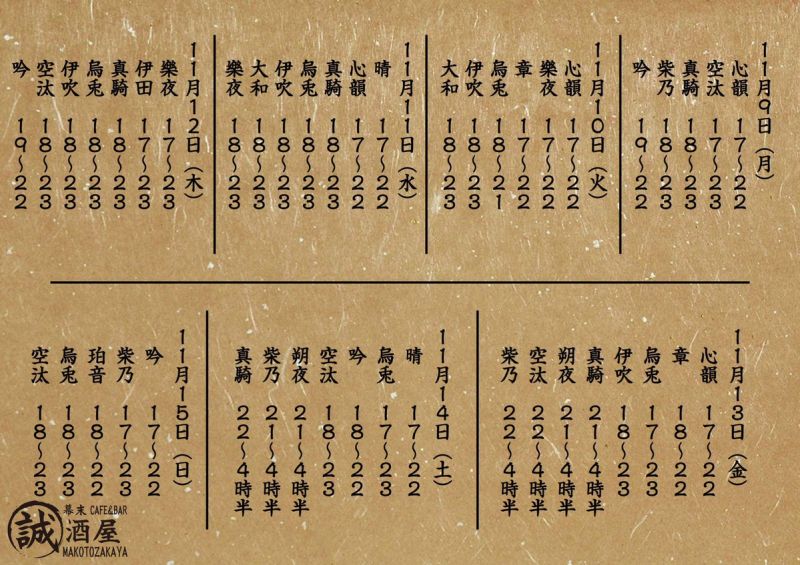 11月9日(月)
心韻 17〜22
空汰 17〜23
真騎 18〜23
柴乃 18〜22
吟 19〜22
11月10日(火)
心韻 17〜22
樂夜 17〜22
章 17〜22
烏兎 18〜21
伊吹 18〜23
大和 18〜23
11月11日(水)
晴 17〜22
心韻 17〜22
真騎 18〜23
烏兎 18〜23
伊吹 18〜23
大和 18〜23
樂夜 18〜23
11月12日(木)
樂夜 17〜23
伊田 17〜23
真騎 18〜23
烏兎 18〜23
伊吹 18〜23
空汰 18〜23
吟 19〜22
11月13日(金)
心韻 17〜22
章 18〜22
烏兎 17〜23
伊吹 18〜23
真騎 21〜4時半
朔夜 21〜4時半
空汰 22〜4時半
柴乃 22〜4時半
11月14日(土)
晴 17〜22
烏兎 17〜23
吟 18〜22
空汰 18〜23
朔夜 21〜4時半
柴乃 21〜4時半
真騎 22〜4時半
11月15日(日)
吟 17〜22
柴乃 17〜23
珀音 18〜22
烏兎 18〜23
空汰 18〜23
幕末 CAFE&BAR
誠酒屋
MAKOTOZAKAYA